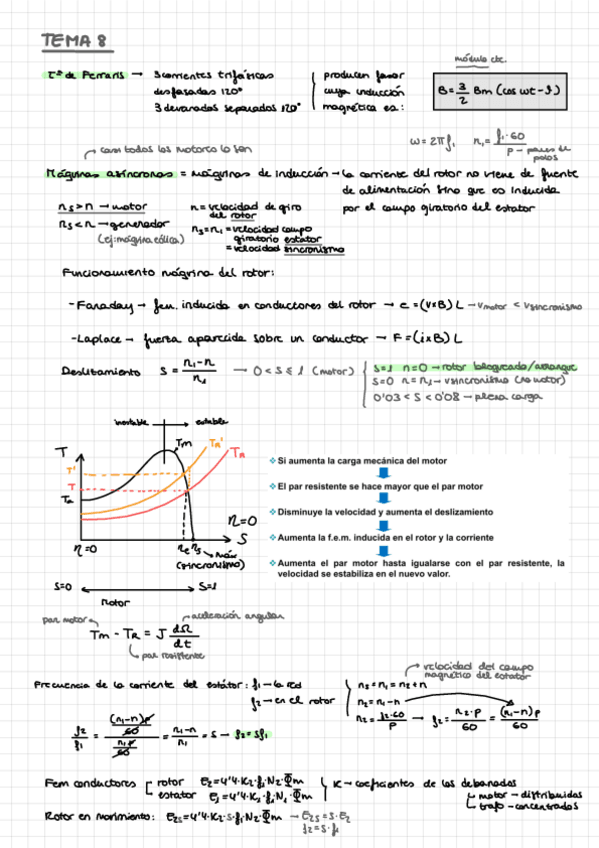 TEMA 8
módulo cte.
Tª de Ferraris → 3 corrientes trifásicas
desfasadas 120°
3 devanados separados 120°
producen fasor
cuya inducción
magnética es:
B = 3/2 Bm (cos wt - δ)
w = 2πf₁ n₁ = f₁·60 / p → pares de polos
casi todos los motores lo son
Máquinas asíncronas = máquinas de inducción → la corriente del rotor no viene de fuente
de alimentación sino que es inducida
por el campo giratorio del estator
ns > n → motor
ns < n → generador
(ej: máquina eólica)
n = velocidad de giro
del rotor
ns = n₁ = velocidad campo
giratorio estator
= velocidad sincronismo
Funcionamiento máquina del rotor:
- Faraday → fem. inducida en conductores del rotor → e = (v×B) L → vmotor < vsincronismo
- Laplace → fuerza aparecida sobre un conductor → F = (i×B) L
Deslizamiento S = n₁ - n / n₁ → 0 < S ≤ 1 (motor)
S=1 n=0 → rotor bloqueado/arranque
S=0 n=n₁ → vsincronismo (no motor)
0'03 < S < 0'08 → plena carga
inestable estable
T Tm TR' TR
T'
T
Ta
n=0
S
n=0 ne ns → máx
(sincronismo)
S=0 S=1
Motor
❖ Si aumenta la carga mecánica del motor
❖ El par resistente se hace mayor que el par motor
❖ Disminuye la velocidad y aumenta el deslizamiento
❖ Aumenta la f.e.m. inducida en el rotor y la corriente
❖ Aumenta el par motor hasta igualarse con el par resistente, la
velocidad se estabiliza en el nuevo valor.
par motor
aceleración angular
Tm - TR = J dΩ/dt
par resistente
velocidad del campo
magnético del estator
Frecuencia de la corriente del estátor: f₁ → la red
f₂ → en el rotor
ns = n₁ = n₂ + n
n₂ = n₁ - n
n₂ = f₂·60 / P → f₂ = n₂·P / 60 = (n₁-n)P / 60
f₂/f₁ = (n₁-n)P/60 / n₁P/60 = n₁-n / n₁ = S → f₂ = Sf₁
Fem conductores rotor E₂ = 4'4·K₂·f₁·N₂·Φm
estator E₁ = 4'4·K₁·f₁·N₁·Φm
K → coeficientes de los debanados
motor → distribuidas
trafo → concentrados
Rotor en movimiento: E₂s = 4'4·K₂·S·f₁·N₂·Φm → E₂s = S·E₂
f₂ = S·f₁